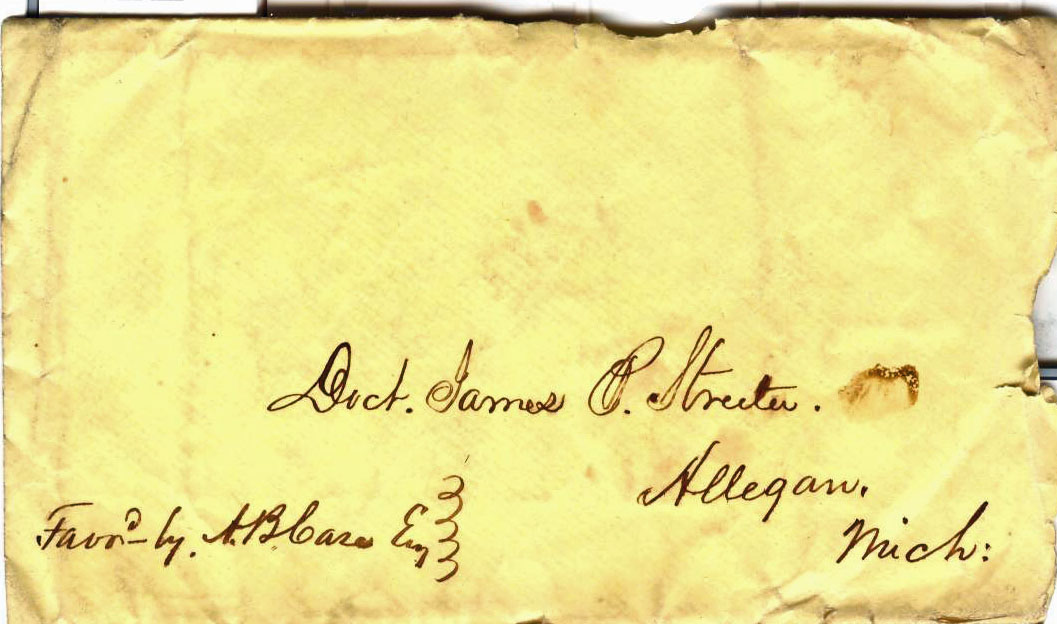 Doct. James P. Streeter.
Allegan.
Mich:
Favord by. A. B. Case Esq